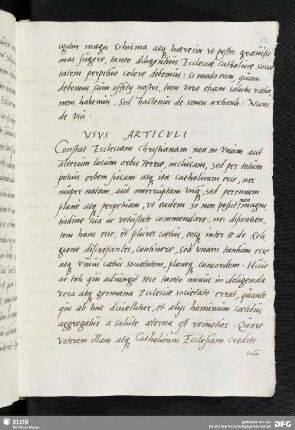 igitur magis schisma atq haeresin ut pestes gravissi
mas fugere, tanto diligentius Ecclesiae catholicae socie
tatem perpetuo colere debemus: si modo eam, quam
debemus cum officij nostri, tum vero etiam salutis ratio
nem habemus. Sed hactenus de sensu articuli. Nunc
de usu.
USUS ARTICULI
Constat Ecclesiam christianam non in unum aut
alterum locum orbis terrae, inclusam, sed per totum
potius orbem fusam atq ita catholicam esse, nec
nuper natam, aut interruptam unq, sed perennem
plane atq perpetuam, ut eadem se non possit magni
tudine sua ac vetustate commendare. nec
hanc esse, et plures caetus, eosq inter se de Reli
gione discrepantes, continere, sed unam tantum esse
atq unius caetus societatem, planeq concordem. Huic
ac tali qui adiungit sese tanto minus in deligenda
vera atq germana Ecclesiae societate errat, quanto
qui ab hac divellitur, et alijs hominum coetibus
aggregatur a salute aeterna est remotior. Quare
veterem illam atq Catholicam Ecclesiam credite
SLUB
Wir führen Wissen.
DFG